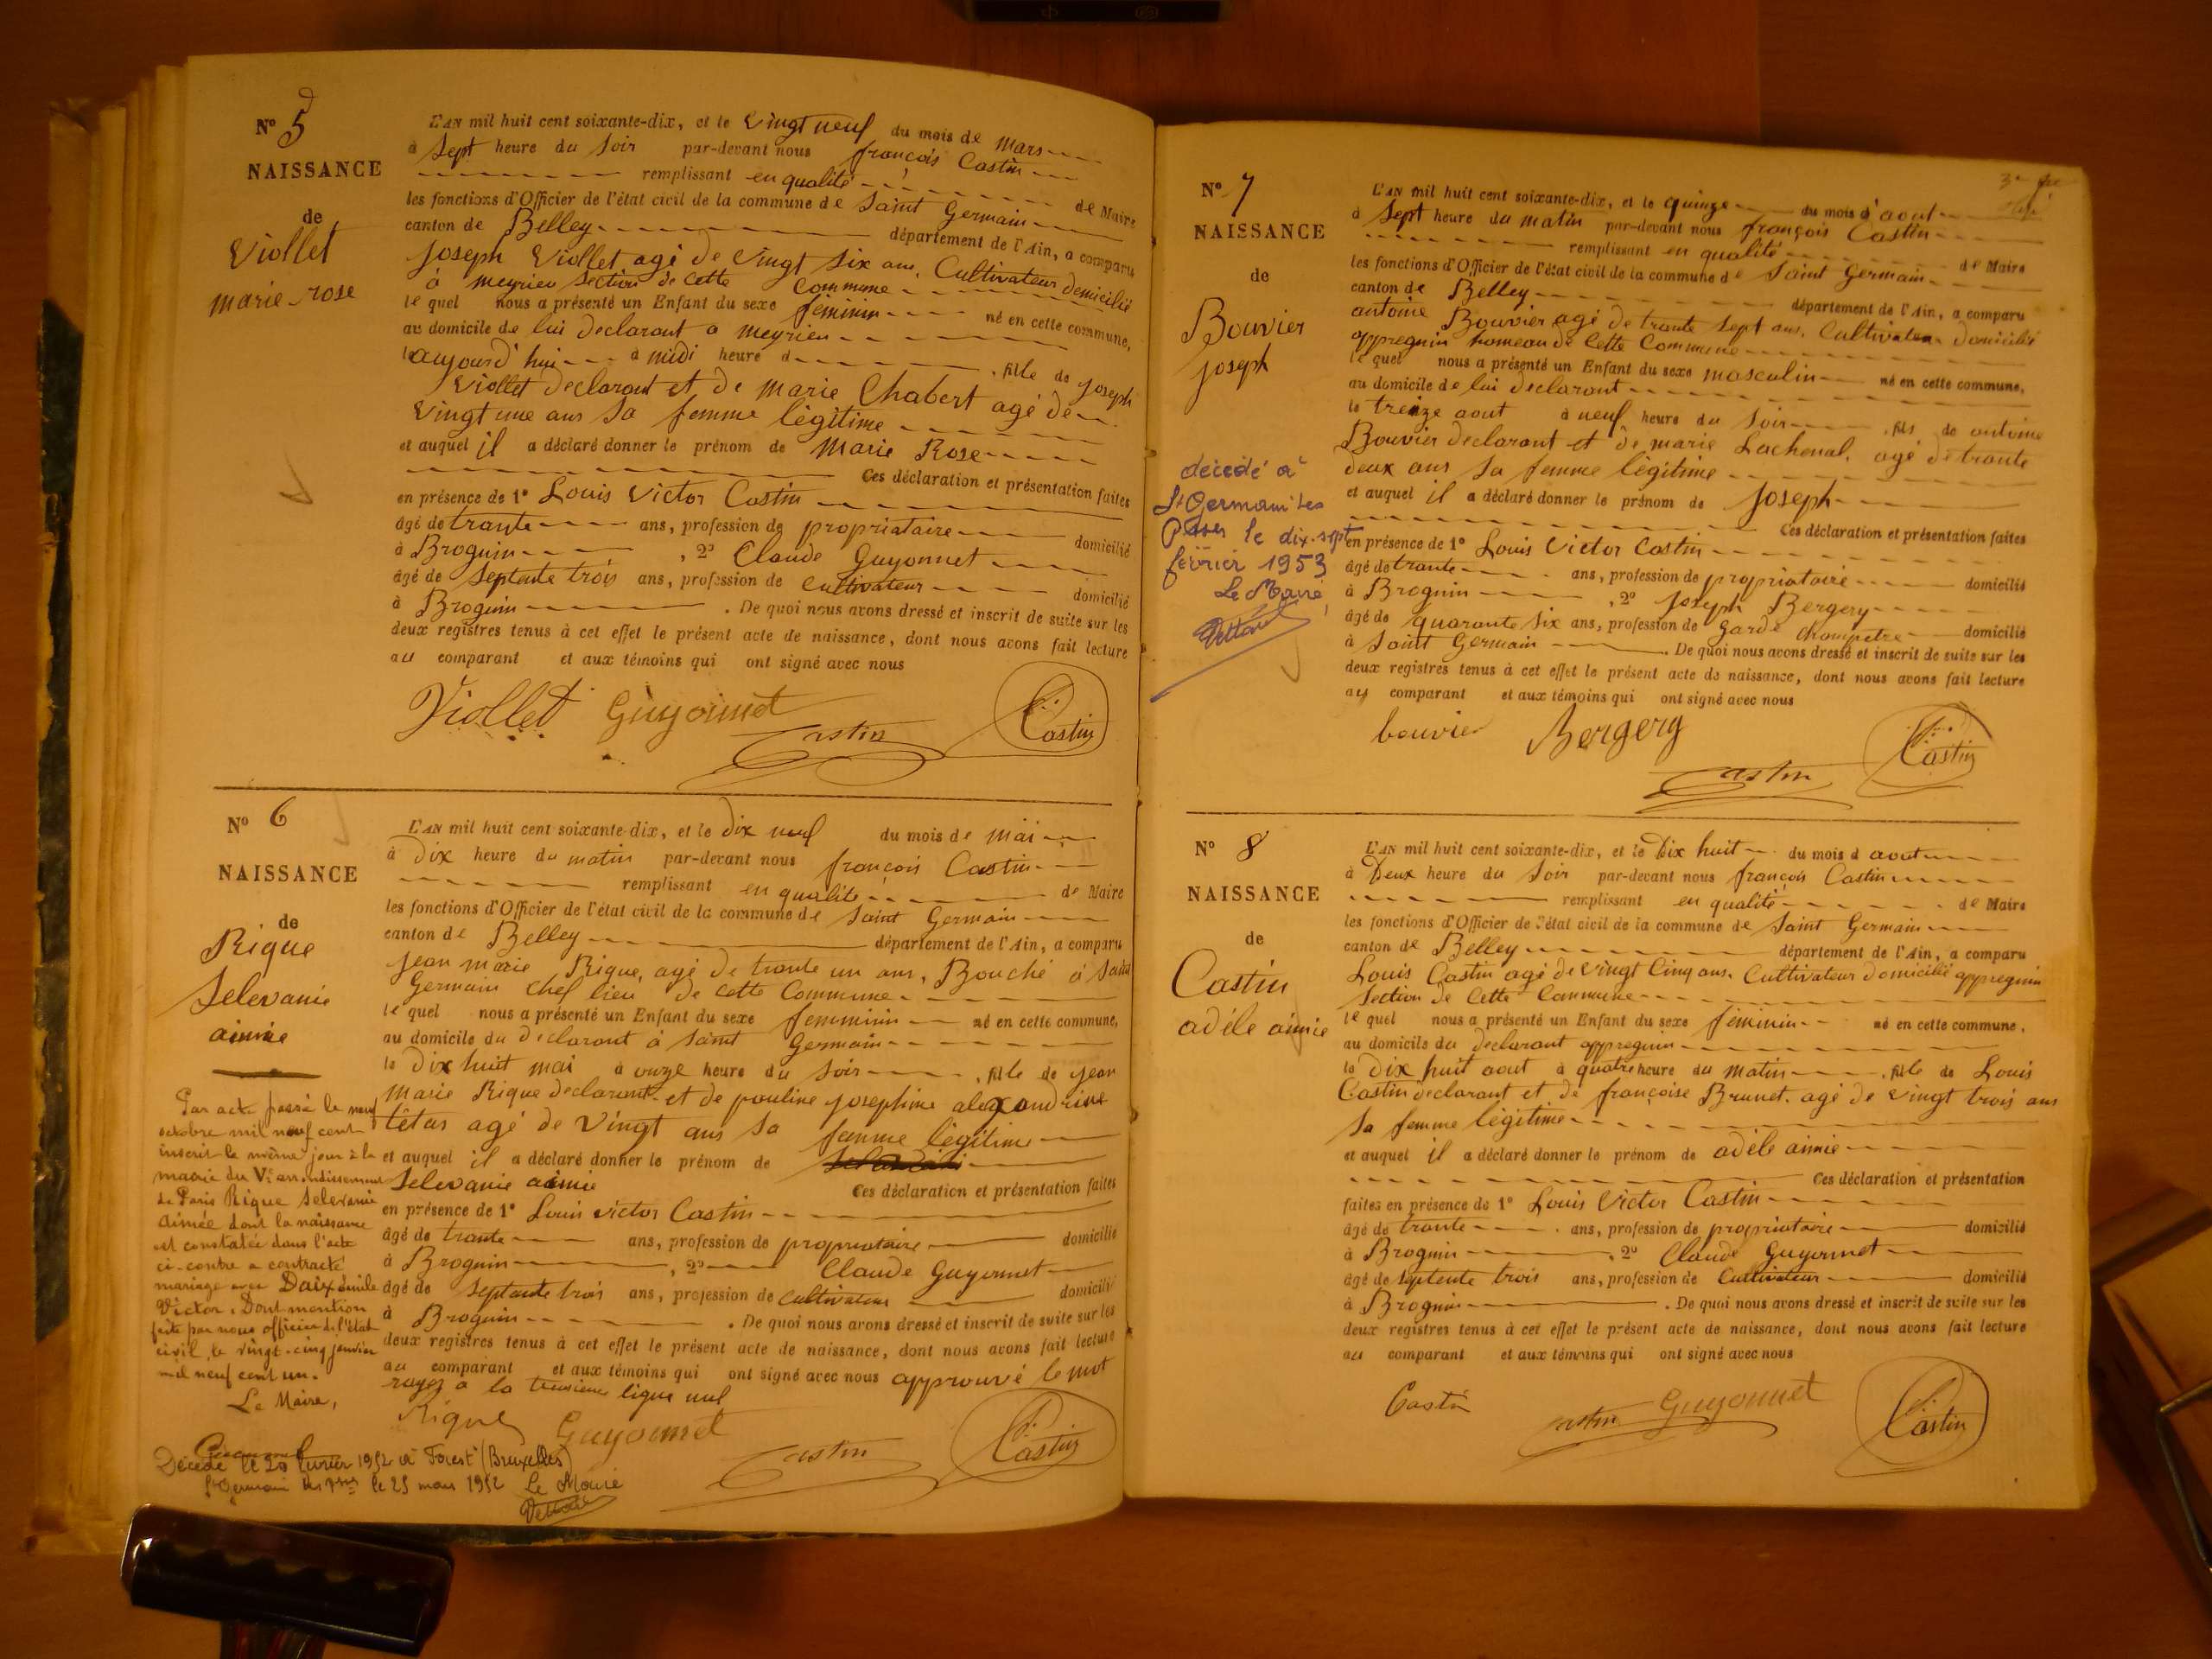 N° 5
NAISSANCE
de
Viollet
marie-rose
L'AN mil huit cent soixante-dix, et le vingt neuf du mois de mars
à sept heure du soir par-devant nous françois Castin
remplissant en qualité de Maire
les fonctions d'Officier de l'état civil de la commune de Saint Germain
canton de Belley département de l'Ain, a comparu
joseph Viollet agé de vingt six ans, Cultivateur domicilié
à meyrieu section de cette commune
le quel nous a présenté un Enfant du sexe féminin né en cette commune,
au domicile de lui declarant a meyrieu
le aujourd'hui à midi heure d , fille de joseph
Viollet declarant et de marie Chabert agé de
vingt une ans sa femme légitime
et auquel il a déclaré donner le prénom de Marie Rose
Ces déclaration et présentation faites
en présence de 1° Louis Victor Castin
âgé de trante ans, profession de propriataire domicilié
à Brognin , 2° Claude Guyonnet
âgé de septente trois ans, profession de cultivateur domicilié
à Brognin . De quoi nous avons dressé et inscrit de suite sur les
deux registres tenus à cet effet le présent acte de naissance, dont nous avons fait lecture
au comparant et aux témoins qui ont signé avec nous
Viollet Guyonnet
Castin Castin
N° 6
NAISSANCE
de
Rique
Selevanie
aimée
L'AN mil huit cent soixante-dix, et le dix neuf du mois de mai
à dix heure du matin par-devant nous françois Castin
remplissant en qualité de Maire
les fonctions d'Officier de l'état civil de la commune de Saint Germain
canton de Belley département de l'Ain, a comparu
jean marie Rique, agé de trante un ans, Bouché à Saint
Germain chef lieu de cette Commune
le quel nous a présenté un Enfant du sexe femminin né en cette commune,
au domicile du declarant à Saint Germain
le dix huit mai à onze heure du soir , fille de jean
marie Rique declarant et de pauline josephine alexandrine
têtas agé de vingt ans sa femme légitime
et auquel il a déclaré donner le prénom de
Selevanie aimie Ces déclaration et présentation faites
en présence de 1° Louis victor Castin
âgé de trante ans, profession de propriataire domicilié
à Brognin , 2° Claude Guyonnet
âgé de septante trois ans, profession de cultivateur domicilié
à Brognin . De quoi nous avons dressé et inscrit de suite sur les
deux registres tenus à cet effet le présent acte de naissance, dont nous avons fait lecture
au comparant et aux témoins qui ont signé avec nous approuvé le mot
rayez a la ligne nul
Rique Guyonnet
Castin Castin
Par acte passé le neuf
octobre mil neuf cent
inscrit le même jour à la
mairie du VIe arrondissement
de Paris Rique Selevanie
Aimée dont la naissance
est constatée dans l'acte
ci-contre a contracté
mariage avec Daix émile
Victor. Dont mention
faite par nous officier de l'état
civil, le vingt-cinq janvier
mil neuf cent un.
Le Maire,
Décédé le 20 février 1952 à Forest (Bruxelles)
St Germain les le 25 mars 1952 Le Maire
N° 7
NAISSANCE
de
Bouvier
joseph
décédé à
St Germain les
Paroisses le dix-sept
février 1953
Le Maire,
L'AN mil huit cent soixante-dix, et le quinze du mois d'aout
à sept heure du matin par-devant nous françois Castin
remplissant en qualité de Maire
les fonctions d'Officier de l'état civil de la commune de Saint Germain
canton de Belley département de l'Ain, a comparu
antoine Bouvier agé de trante sept ans, Cultivateur domicilié
appregnin homeau de cette Commune
le quel nous a présenté un Enfant du sexe masculin né en cette commune,
au domicile de lui declarant
le treize aout à neuf heure du soir , fils de antoine
Bouvier declarant et de marie Lachenal, agé de trante
deux ans sa femme légitime
et auquel il a déclaré donner le prénom de joseph
Ces déclaration et présentation faites
en présence de 1° Louis Victor Castin
âgé de trante ans, profession de propriataire domicilié
à Brognin , 2° joseph Bergery
âgé de quarante six ans, profession de garde champetre domicilié
à Saint Germain . De quoi nous avons dressé et inscrit de suite sur les
deux registres tenus à cet effet le présent acte de naissance, dont nous avons fait lecture
au comparant et aux témoins qui ont signé avec nous
bouvier Bergery
Castin Castin
N° 8
NAISSANCE
de
Castin
adéle aimie
L'AN mil huit cent soixante-dix, et le Dix huit du mois d aout
à Deux heure du soir par-devant nous françois Castin
remplissant en qualité de Maire
les fonctions d'Officier de l'état civil de la commune de Saint Germain
canton de Belley département de l'Ain, a comparu
Louis Castin agé de vingt cinq ans, Cultivateur domicilié appregnin
section de cette Commune
le quel nous a présenté un Enfant du sexe féminin né en cette commune,
au domicile du declarant appregnin
le dix huit aout à quatre heure du matin , fille de Louis
Castin declarant et de françoise Brunet, agé de vingt trois ans
sa femme légitime
et auquel il a déclaré donner le prénom de adéle aimie
Ces déclaration et présentation
faites en présence de 1° Louis Victor Castin
âgé de trante ans, profession de propriataire domicilié
à Brognin , 2° Claude Guyonnet
âgé de septente trois ans, profession de Cultivateur domicilié
à Brognin . De quoi nous avons dressé et inscrit de suite sur les
deux registres tenus à cet effet le présent acte de naissance, dont nous avons fait lecture
au comparant et aux témoins qui ont signé avec nous
Castin Castin Guyonnet Castin